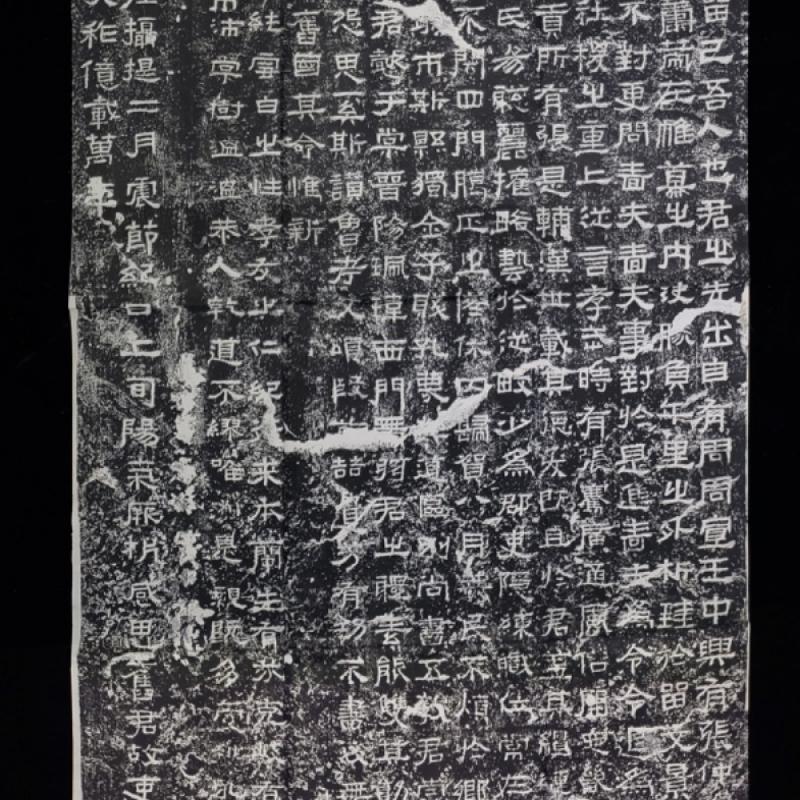 留己吾人也君之先出自有周周宣王中興有張仲
籌策在帷幕之內決勝負千里之外析珪於留文景
不對更問嗇夫嗇夫事對於是進嗇夫為令令退為
社稷之重上從言孝武時有張騫廣通風俗開定畿
貢所有張是輔漢世載其德爰既且於君蓋其繵縺
氏易聰麗權略藝於從畋少為郡吏隱練職位常在
不閉四門騰正之僚休囚歸賀八月算民不煩於鄉
城市斯縣獨全子賤孔蔑其道區別尚書五教君崇
君懿于棠晉陽珮瑋西門帶弦君之體素能雙其勛
恐思奚斯讚魯考父頌殷前喆遺芳有功不書後無
舊國其命惟新
純雪白之性孝友之仁紀行來本蘭生有芬克岐有
布沛棠樹溫溫恭人乾道不繆唯淑是親既多受祉永
在攝提二月震節紀日上旬陽氣厥析感思舊君故吏
天祚億載萬年